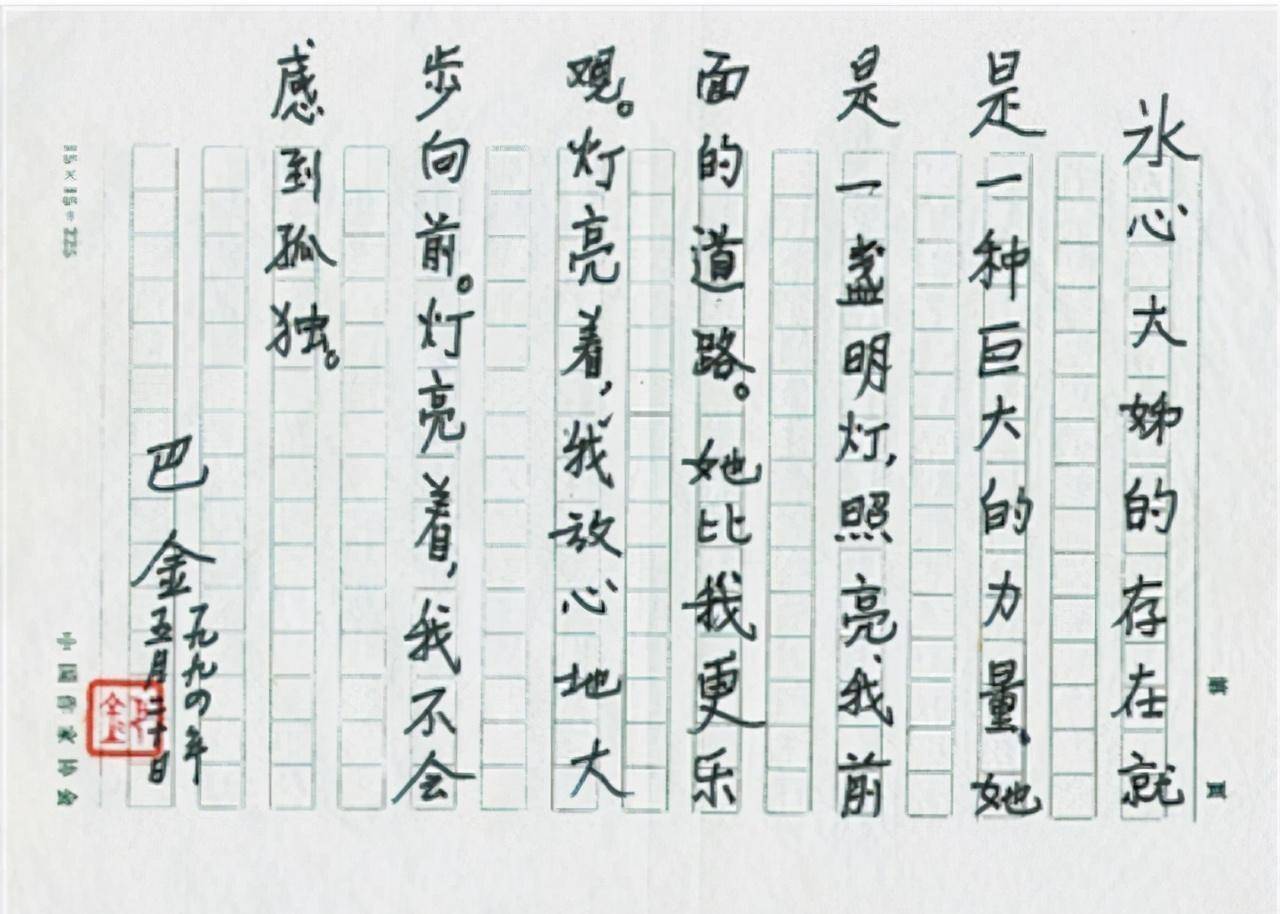 冰心大姊的存在就
是一种巨大的力量。她
是一盏明灯，照亮我前
面的道路。她比我更乐
观。灯亮着，我放心地大
步向前。灯亮着，我不会
感到孤独。
巴金
一九九四年
五月二十日
15×15=225
中国作家协会
第 页